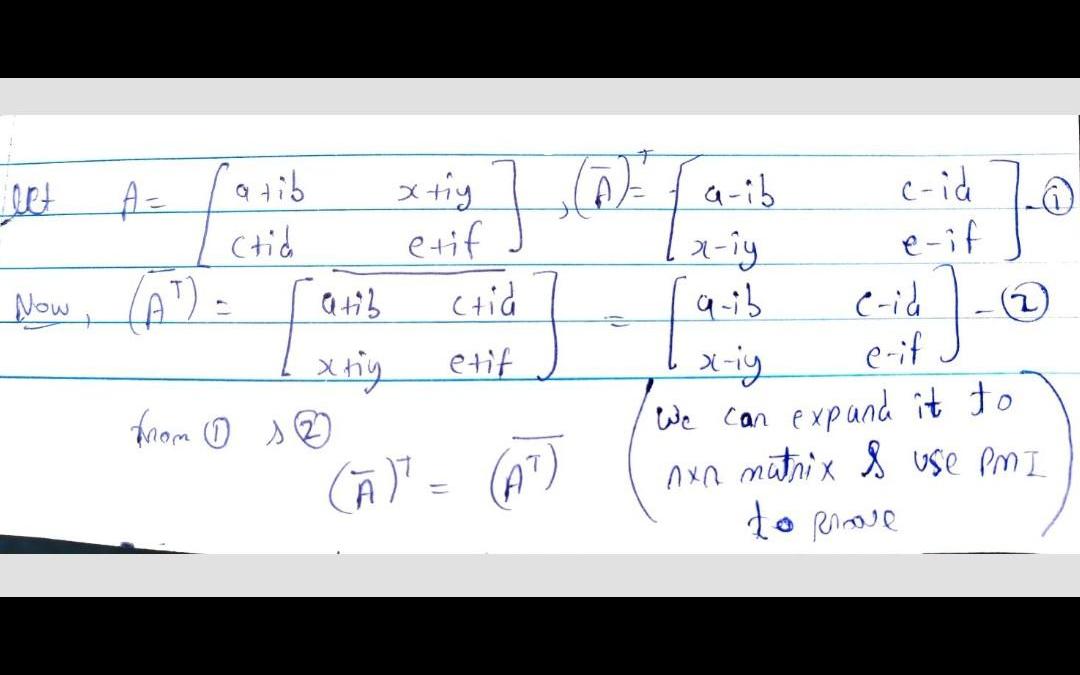 let A = [ a+ib x+iy ; c+id e+if ], (Ā)ᵀ = [ a-ib c-id ; x-iy e-if ] - ①
Now, (A̅ᵀ̅) = [ a+ib c+id ; x+iy e+if ]‾ = [ a-ib c-id ; x-iy e-if ] - ②
from ① & ②
(Ā)ᵀ = (A̅ᵀ̅)
(We can expand it to
nxn matrix & use PMI
to prove)